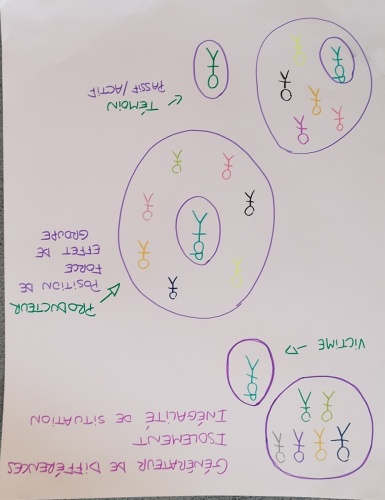 GÉNÉRATEUR DE DIFFÉRENCES
ISOLEMENT
INÉGALITÉ DE SITUATION
VICTIME
PRODUCTEUR
POSITION DE
FORCE
EFFET DE
GROUPE
TÉMOIN
PASSIF/ACTIF